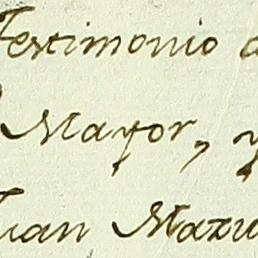 Testimonio d
Mayor, y
Juan Mazu